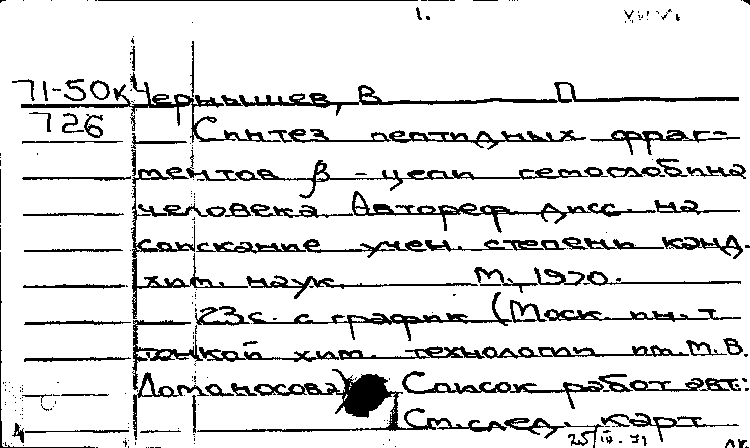 1.
71-50к Чернышев, В П
726 Синтез пептидных фраг-
ментов β-цепи гемоглобина
человека. Автореф. дисс. на
соискание учен. степени канд.
хим. наук. М., 1970.
23с. с график (Моск. ин. т
тонкой хим. технологии им. М. В.
Ломоносова) Список работ авт.:
См. след. карт
25/IV-71